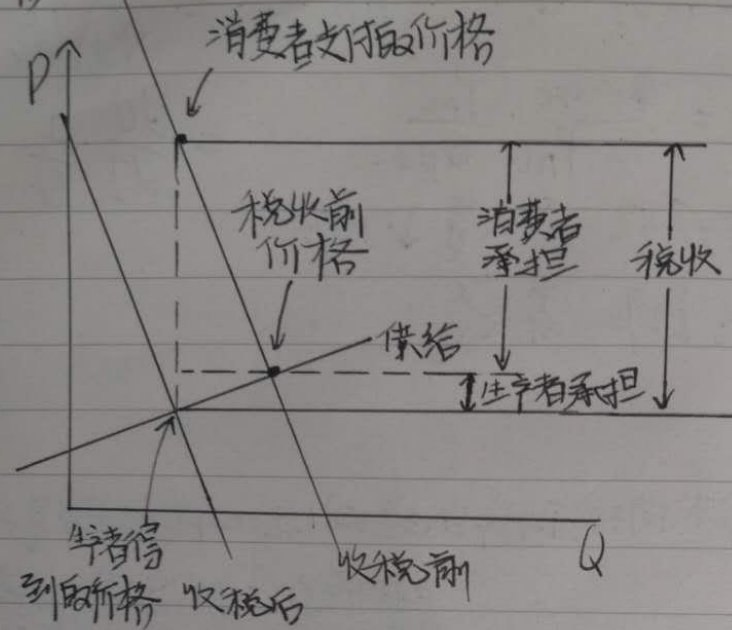 消费者支付的价格
P
税收前
价格
消费者
承担
税收
供给
生产者承担
生产者得
到的价格
收税后
收税前
Q